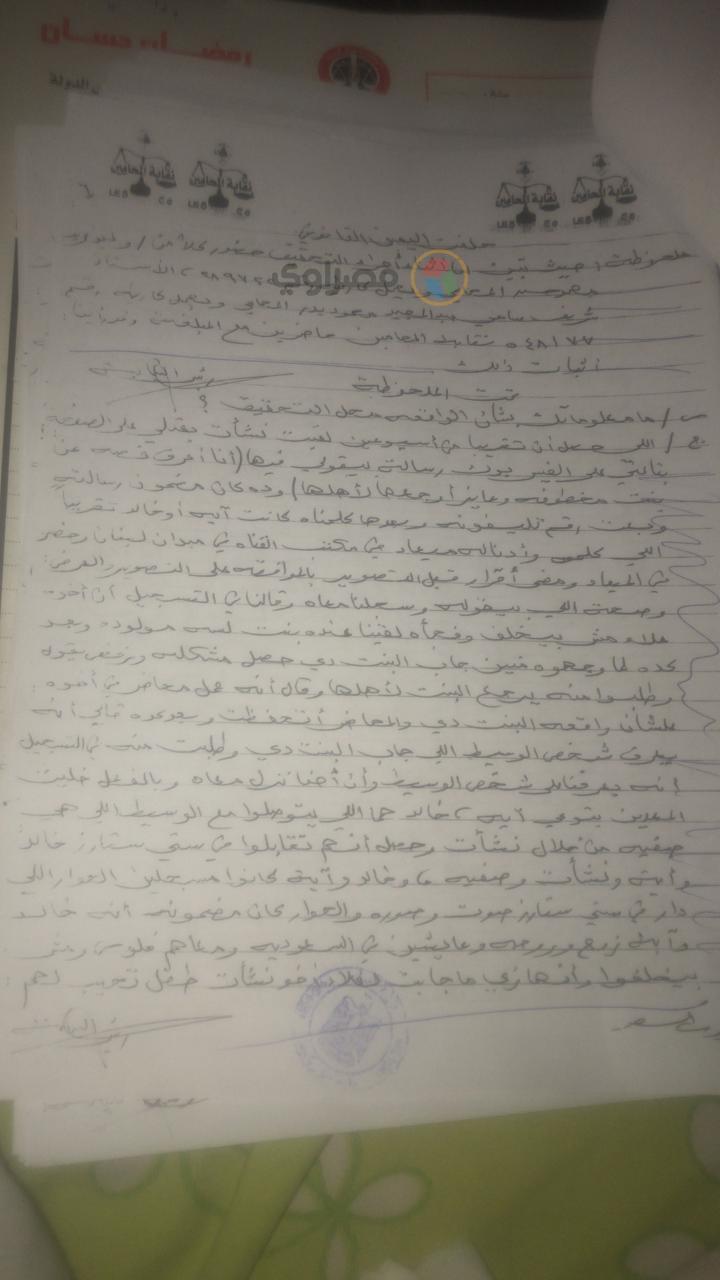 رمضان حسان
والدولة
نقابة المحامين نقابة المحامين نقابة المحامين نقابة المحامين
٦
حلف اليمين القانونية
ملحوظة / حيث تبين لنا أثناء إجراء التحقيق حضور كلا من / وليد
مصراوي
المحامي
شريف سامي عبد المجيد محمود بدر المحامي ويحمل كارنيه رقم
٥٤٨١٧٧ نقابة المحامين حاضرين مع المبلغين
اثبات ذلك
تمت الملحوظة
س / ما معلوماتك بشأن الواقعة محل التحقيق ؟
ج / اللي حصل أن تقريبا من أسبوعين لقيت نشأت بعتلي على الصفحة
بتاعتي على الفيس بوك رسالة بيقولي فيها (أنا أعرف قصة عن
بنت مخطوفة وعايز أرجعها لأهلها) وده كان مضمون رسالته
وكتبت رقم تليفونه وبعدها كلمناه كانت آيه أو خالد تقريباً
اللي كلموه وأدناله ميعاد في مكتب القناه في ميدان لبنان وحضر
في الميعاد ومضى أقرار قبل التصوير بالموافقة على التصوير والعرض
وصحة اللي بيقوله وسجلنا معاه وقالنا في التسجيل أن أخوه
علاء مش بيخلف وفجأه لقينا عنده بنت لسه مولوده وبعد
كده لما وجهوه منين جاب البنت دي حصل مشكله ورفض يقوله
وطلبوا منه يرجع البنت لأهلها وقال أنه عمل محاضر في أخوه
علشان واقعه البنت دي والمحاضر أتحفظت وبعد كده قالي أنه
يعرف شخص الوسيط اللي جاب البنت دي وطلبت منه في التسجيل
أنه يعرفنا على شخص الوسيط وأن أحنا ننزل معاه وبالفعل خليت
المعدين بتوعي آيه و خالد هما اللي يتوصلوا مع الوسيط اللي هي
صفيه من خلال نشأت وحصل أنهم تقابلوا في سيتي ستارز خالد
وآية ونشأت وصفيه وخالد وآية كانوا مسجلين الحوار اللي
دار في سيتي ستارز صوت وصورة والحوار كان مضمونه أنه خالد
وآية زوج وزوجه وعايشين في السعودية ومعاهم فلوس ومش
بيخلفوا وأنها زي ما جابت لعلاء أخو نشأت طفل تجيب لهم